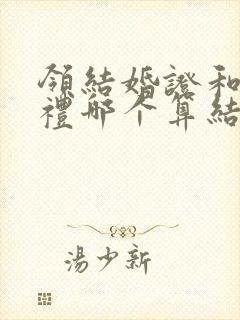 領結婚證和
禮哪个算結
湯少新